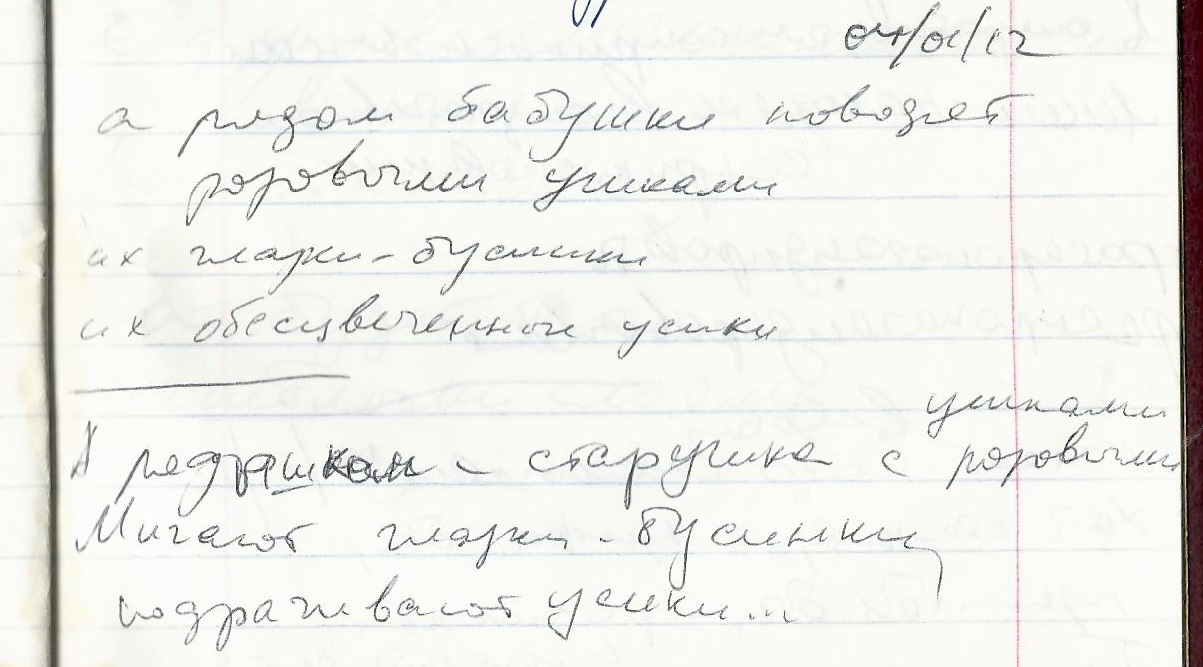 04/01/12
а рядом бабушки поводят
розовыми ушками
их глазки-бусинки
их обесцвеченные усики
А рядышком - старушка с розовыми ушками
Мигают глазки-бусинки,
подрагивают усики...